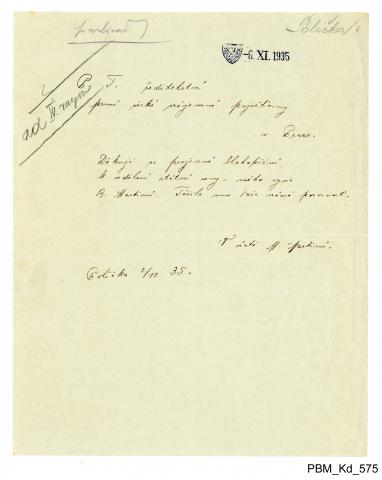 Polička
-6. XI. 1935
ad IV.
P. T. ředitelství
první české vzájemné pojišťovny
v Brně.
Děkuji za projevené blahopřání
k udělení státní ceny mého syna
B. Martinů. Těšilo mne Vaše
V úctě M. Martinů.
Polička 2/11 35.
PBM_Kd_575